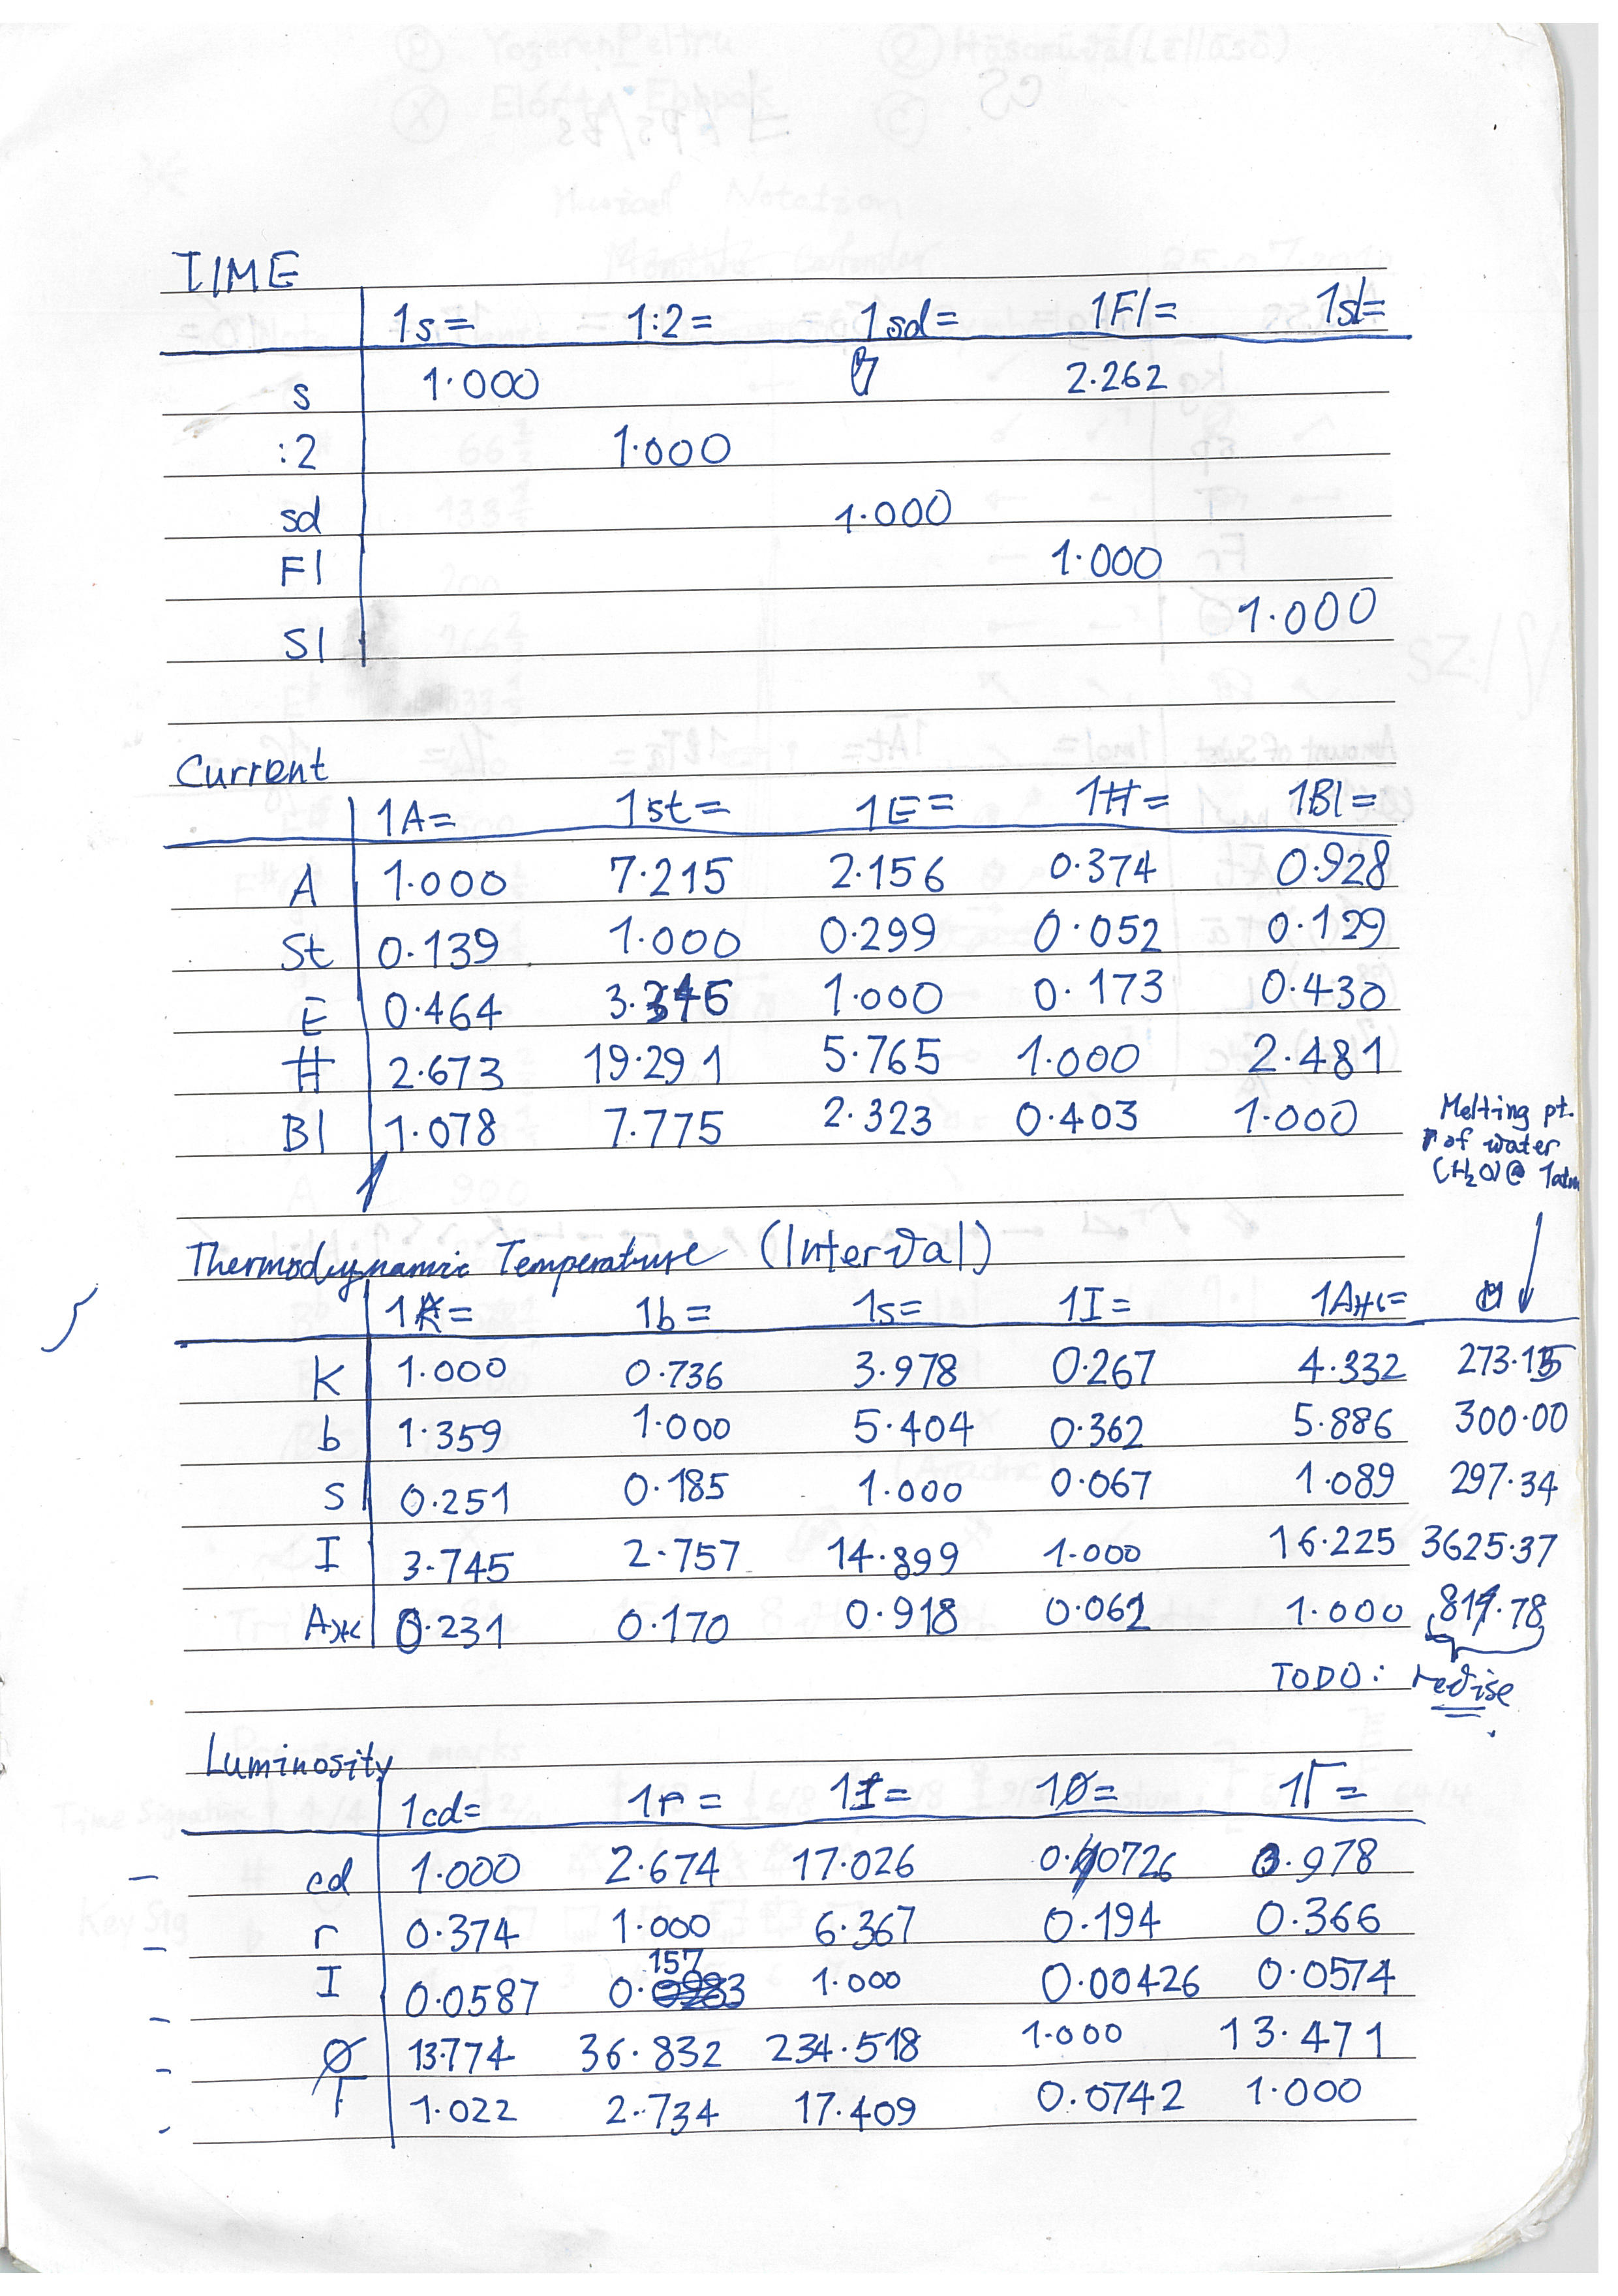 TIME
1s= 1:2= 1sd= 1Fl= 1sl=
s 1.000 2.262
:2 1.000
sd 1.000
Fl 1.000
Sl 1.000
Current
1A= 1st= 1E= 1H= 1Bl=
A 1.000 7.215 2.156 0.374 0.928
St 0.139 1.000 0.299 0.052 0.129
E 0.464 1.000 0.173 0.430
H 2.673 19.291 5.765 1.000 2.481
Bl 1.078 7.775 2.323 0.403 1.000
Melting pt.
of water
(H₂O)@ 1atm
Thermodynamic Temperature (Interval)
1K= 1b= 1s= 1I= 1AЖ=
K 1.000 0.736 3.978 0.267 4.332 273.15
b 1.359 1.000 5.404 0.362 5.886 300.00
S 0.251 0.185 1.000 0.067 1.089 297.34
I 3.745 2.757 14.899 1.000 16.225 3625.37
AЖ 0.231 0.170 0.918 0.062 1.000 .78
TODO: revise
Luminosity
1cd= 1r= 1I= 1Ø= 1Γ=
cd 1.000 2.674 17.026 0.0726 0.978
r 0.374 1.000 6.367 0.194 0.366
I 0.0587 0.157 1.000 0.00426 0.0574
Ø 13.774 36.832 234.518 1.000 13.471
Γ 1.022 2.734 17.409 0.0742 1.000